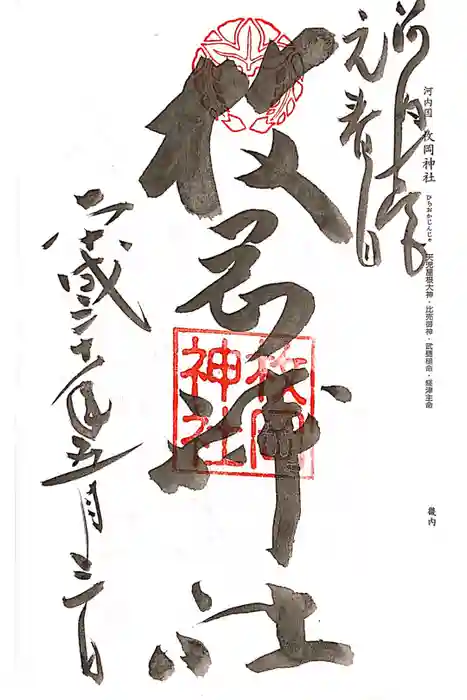 河内国一之宮
元春日
河内国 枚岡神社
ひらおかじんじゃ
天児屋根大神・比売御神・武甕槌命・経津主命
畿内
枚岡神社
枚岡
神社
平成二十八年五月三日